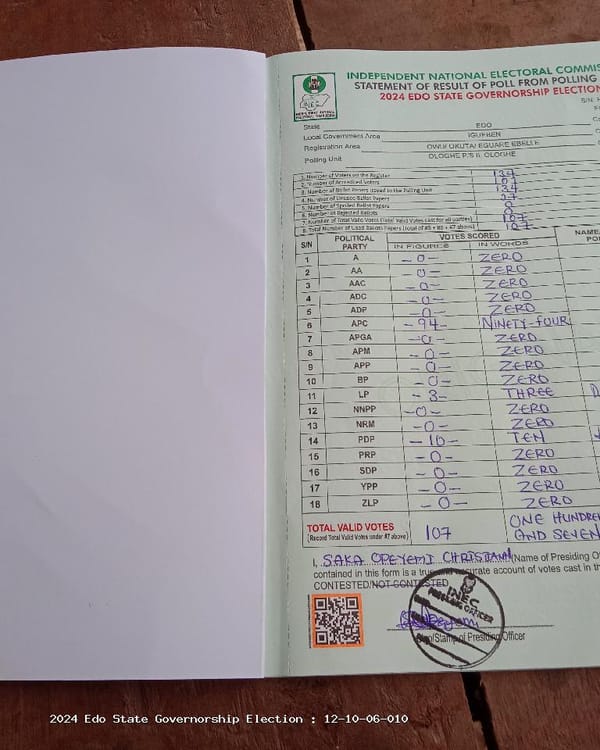 INDEPENDENT NATIONAL ELECTORAL COMMIS
STATEMENT OF RESULT OF POLL FROM POLLING
2024 EDO STATE GOVERNORSHIP ELECTION
INEC
State EDO
Local Government Area IGUEBEN
Registration Area OWU/OKUTA/ EGUARE EBELLE
Polling Unit OLOGHE P/S II, OLOGHE
1. Number of Voters on the Register 134
2. Number of Accredited Voters 107
3. Number of Ballot Papers Issued to the Polling Unit 134
4. Number of Unused Ballot Papers 27
5. Number of Spoiled Ballot Papers 0
6. Number of Rejected Ballots 0
7. Number of Total Valid Votes (Total Valid Votes cast for all parties) 107
8. Total Number of Used Ballot Papers (Total of #5 + #6 + #7 above) 107
S/N POLITICAL PARTY VOTES SCORED NAME
IN FIGURES IN WORDS
1 A -0- ZERO
2 AA -0- ZERO
3 AAC -0- ZERO
4 ADC -0- ZERO
5 ADP -0- ZERO
6 APC -94- NINETY-FOUR
7 APGA -0- ZERO
8 APM -0- ZERO
9 APP -0- ZERO
10 BP -0- ZERO
11 LP -3- THREE
12 NNPP -0- ZERO
13 NRM -0- ZERO
14 PDP -10- TEN
15 PRP -0- ZERO
16 SDP -0- ZERO
17 YPP -0- ZERO
18 ZLP -0- ZERO
TOTAL VALID VOTES 107 ONE HUNDRED
(Record Total Valid Votes under #7 above) AND SEVEN
I, SAKA OPEYEMI CHRISTIANA (Name of Presiding Of
contained in this form is a true and accurate account of votes cast in th
CONTESTED/NOT CONTESTED
INEC
PRESIDING OFFICER
Sign/Stamp of Presiding Officer
2024 Edo State Governorship Election : 12-10-06-010